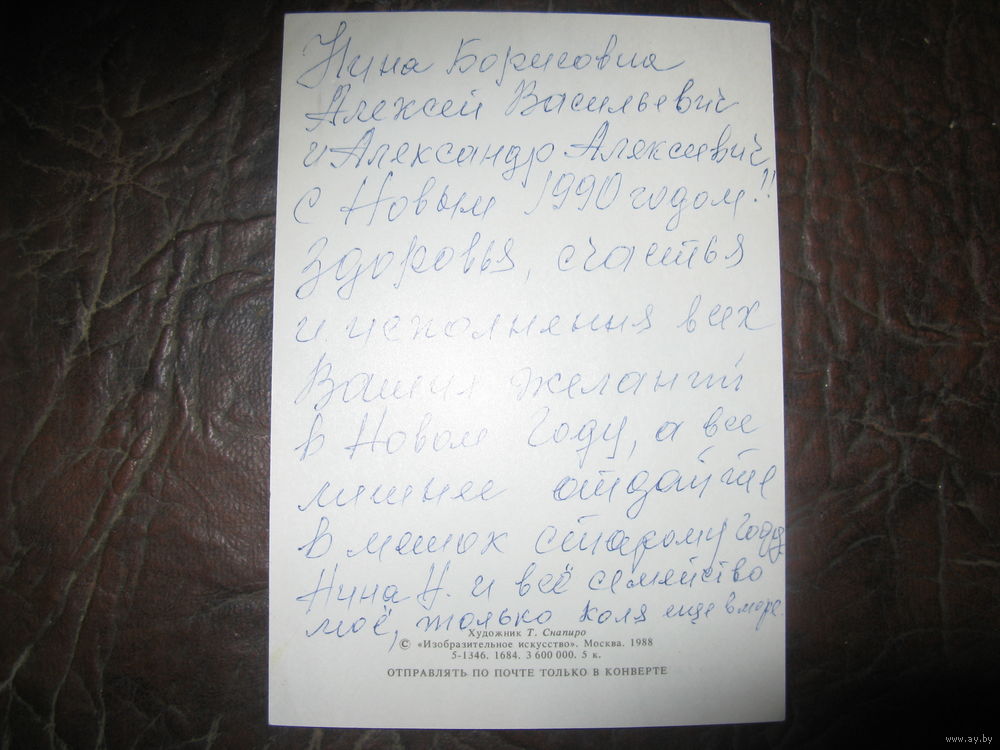 Нина Борисовна
Алексей Васильевич
и Александр Алексеевич,
с Новым 1990 годом!!
Здоровья, счастья
и исполнения всех
Ваших желаний
в Новом Году, а все
лишнее отдайте
в мешок старому году
Нина Н. и всё семейство
моё, только Коля еще в море.
Художник Т. Снапиро
© «Изобразительное искусство». Москва. 1988
5-1346. 1684. 3 600 000. 5 к.
ОТПРАВЛЯТЬ ПО ПОЧТЕ ТОЛЬКО В КОНВЕРТЕ
www.ay.by